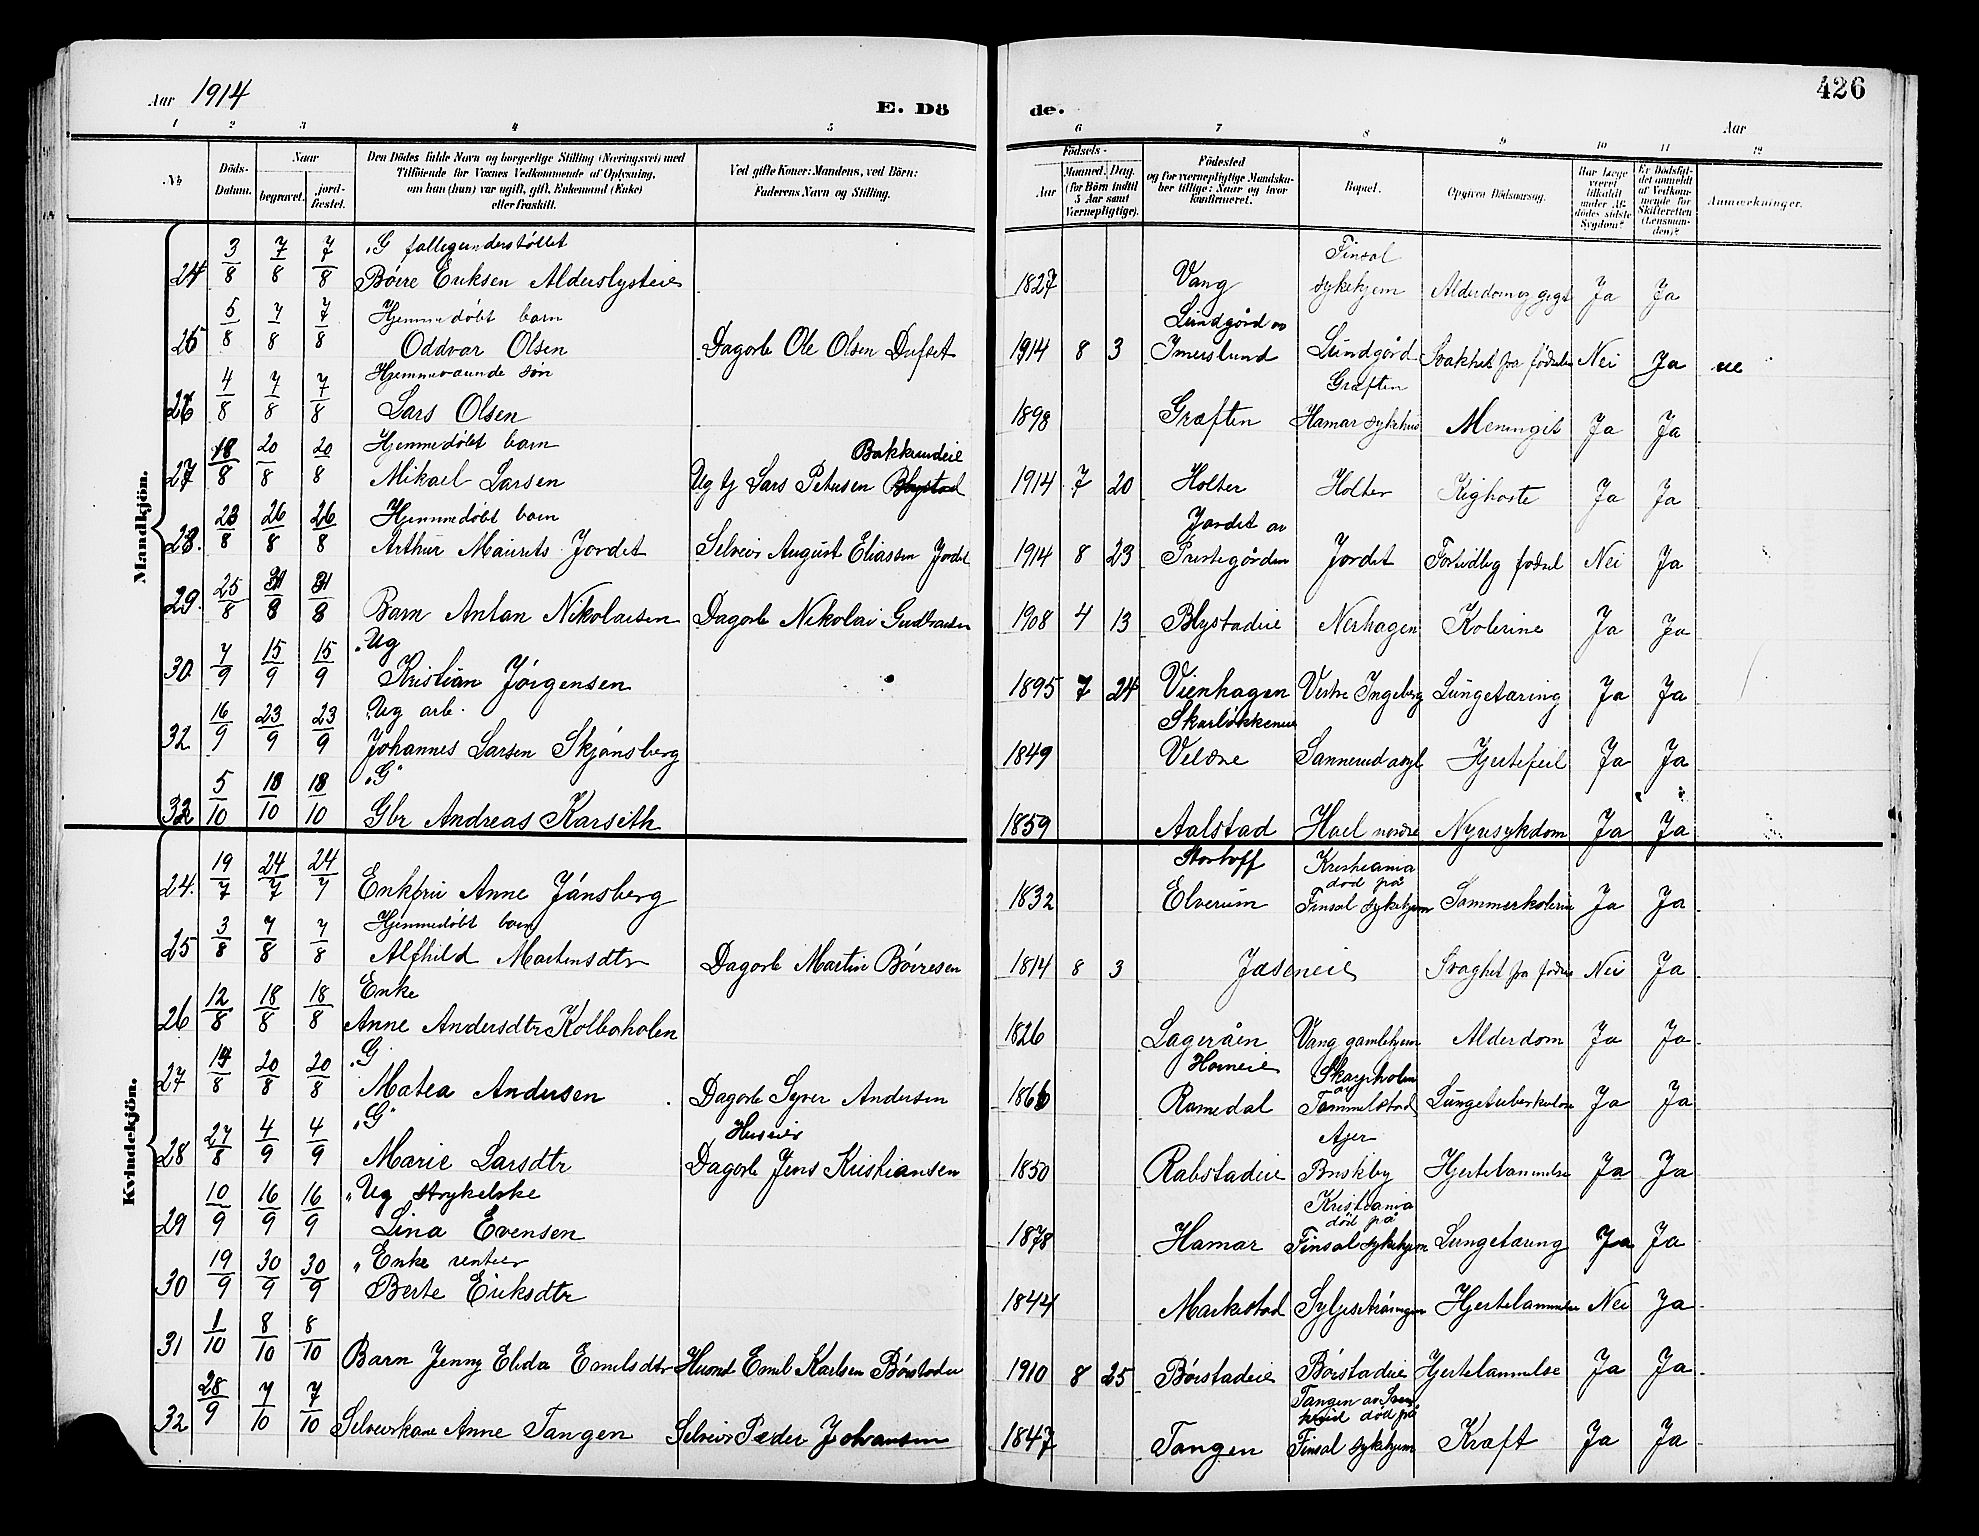 Aar 1914
E. Dö
de.
426
Aar
1 2 3 4 5 6 7 8 9 10 11 12
No.
Döds-
Datum.
Naar
begravet.
jord-
fæstet.
Den Dödes fulde Navn og borgerlige Stilling (Næringsvei) med
Tilföiende for Voxnes Vedkommende af Oplysning,
om han (hun) var ugift, gift, Enkemand (Enke)
eller fraskilt.
Ved gifte Koner: Mandens, ved Börn:
Faderens Navn og Stilling.
Födsels-
Aar
Maaned. Dag.
(for Börn indtil
5 Aar samt
Værnepligtige).
Födested
og for værnepligtige Mandska-
ber tillige: Naar og hvor
konfirmeret.
Bopæl.
Opgiven Dödsaarsag.
Har Læge
været
tilkaldt
under Af-
dödes sidste
Sygdom?
Er Dödsfal-
det anmeldt
af Vedkom-
mende for
Skifteretten
(Lensman-
den)?
Anmærkninger.
Mandkjön.
24 3/8 7/8 7/8 G fattigunderstöttet
Böire Eriksen Alderslysteie 1827 Vang Finsal sykehjem Alderdom og gigt Ja Ja
25 5/8 7/8 7/8 Hjemmedöbt barn
Oddvar Olsen Dagarb Ole Olsen Dufset 1914 8 3 Lundgård av Imerslund Lundgård Svakhet fra födselen Nei Ja
26 4/8 7/8 7/8 Hjemmeværende sön
Lars Olsen 1898 Græften Græften Hamar sykehus Meningit Ja Ja
27 18/8 20/8 20/8 Hjemmedöbt barn
Mikael Larsen Ug tj Lars Petersen Blystad Bakkundeie 1914 7 20 Holter Holter Kighoste Ja Ja
28. 23/8 26/8 26/8 Hjemmedöbt barn
Arthur Maurits Jordet Selveier August Eliassen Jordet 1914 8 23 Jordet av Prestegården Jordet Fortidlig födsel Nei Ja
29. 25/8 31/8 31/8
Barn Anton Nikolaisen Dagarb Nikolai Gudbrandsen 1908 4 13 Blystadeie Nerhagen Kolerine Ja Ja
30 7/9 15/9 15/9 Ug
Kristian Jörgensen 1895 7 24 Vienhagen Vestre Ingeberg Lungetæring Ja Ja
32 16/9 23/9 23/9 Ug arb.
Johannes Larsen Skjönsberg 1849 Skarlökkeneie Veldre Sannerud asyl Hjertefeil Ja Ja
32 5/10 18/10 18/10 "G"
Gbr Andreas Karseth 1859 Aalstad Hoel nordre Nyresykdom Ja Ja
Kvindekjön.
24. 19/7 24/7 24/7
Enkefru Anne Jönsberg 1832 Storhoff Elverum Kristiania död på Finsal sykehjem Sommerkolerine Ja Ja
25 3/8 7/8 7/8 Hjemmedöbt barn
Alfhild Martinsdtr Dagarb Martin Böiresen 1814 8 3 Jaseneie Svaghet fra födsel Nei Ja
26 12/8 18/8 18/8 Enke
Anne Andersdtr Kolboholen 1826 Lageråen Vang gamlehjem Alderdom Ja Ja
27 14/8 20/8 20/8 G
Matea Andersen Dagarb Syver Andersen 1866 Horneie Ramedal Skarpholen av Tommelstad Lungetuberkulose Ja Ja
28 27/8 4/9 4/9 "G"
Marie Larsdtr Huseier Dagarb Jens Kristiansen 1850 Rabstadeie Ajer Briskeby Hjertelammelse Ja Ja
29 10/9 16/9 16/9 Ug strykerske
Lina Evensen 1878 Hamar Kristiania död på Finsal sykehjem Lungetæring Ja Ja
30 19/9 30/9 30/9 Enke rentier
Berte Eriksdtr 1844 Markestad Hjertelammelse Nei Ja
31 1/10 8/10 8/10
Barn Jenny Elida Emilsdtr Husmd Emil Karlsen Börstadeie 1910 8 25 Börstadeie Börstadeie Hjertelammelse Ja Ja
32 28/9 7/10 7/10
Selveierkone Anne Tangen Selveier Peder Johansen 1847 Tangen Tangen av död på Finsal sykehjem Kræft Ja Ja